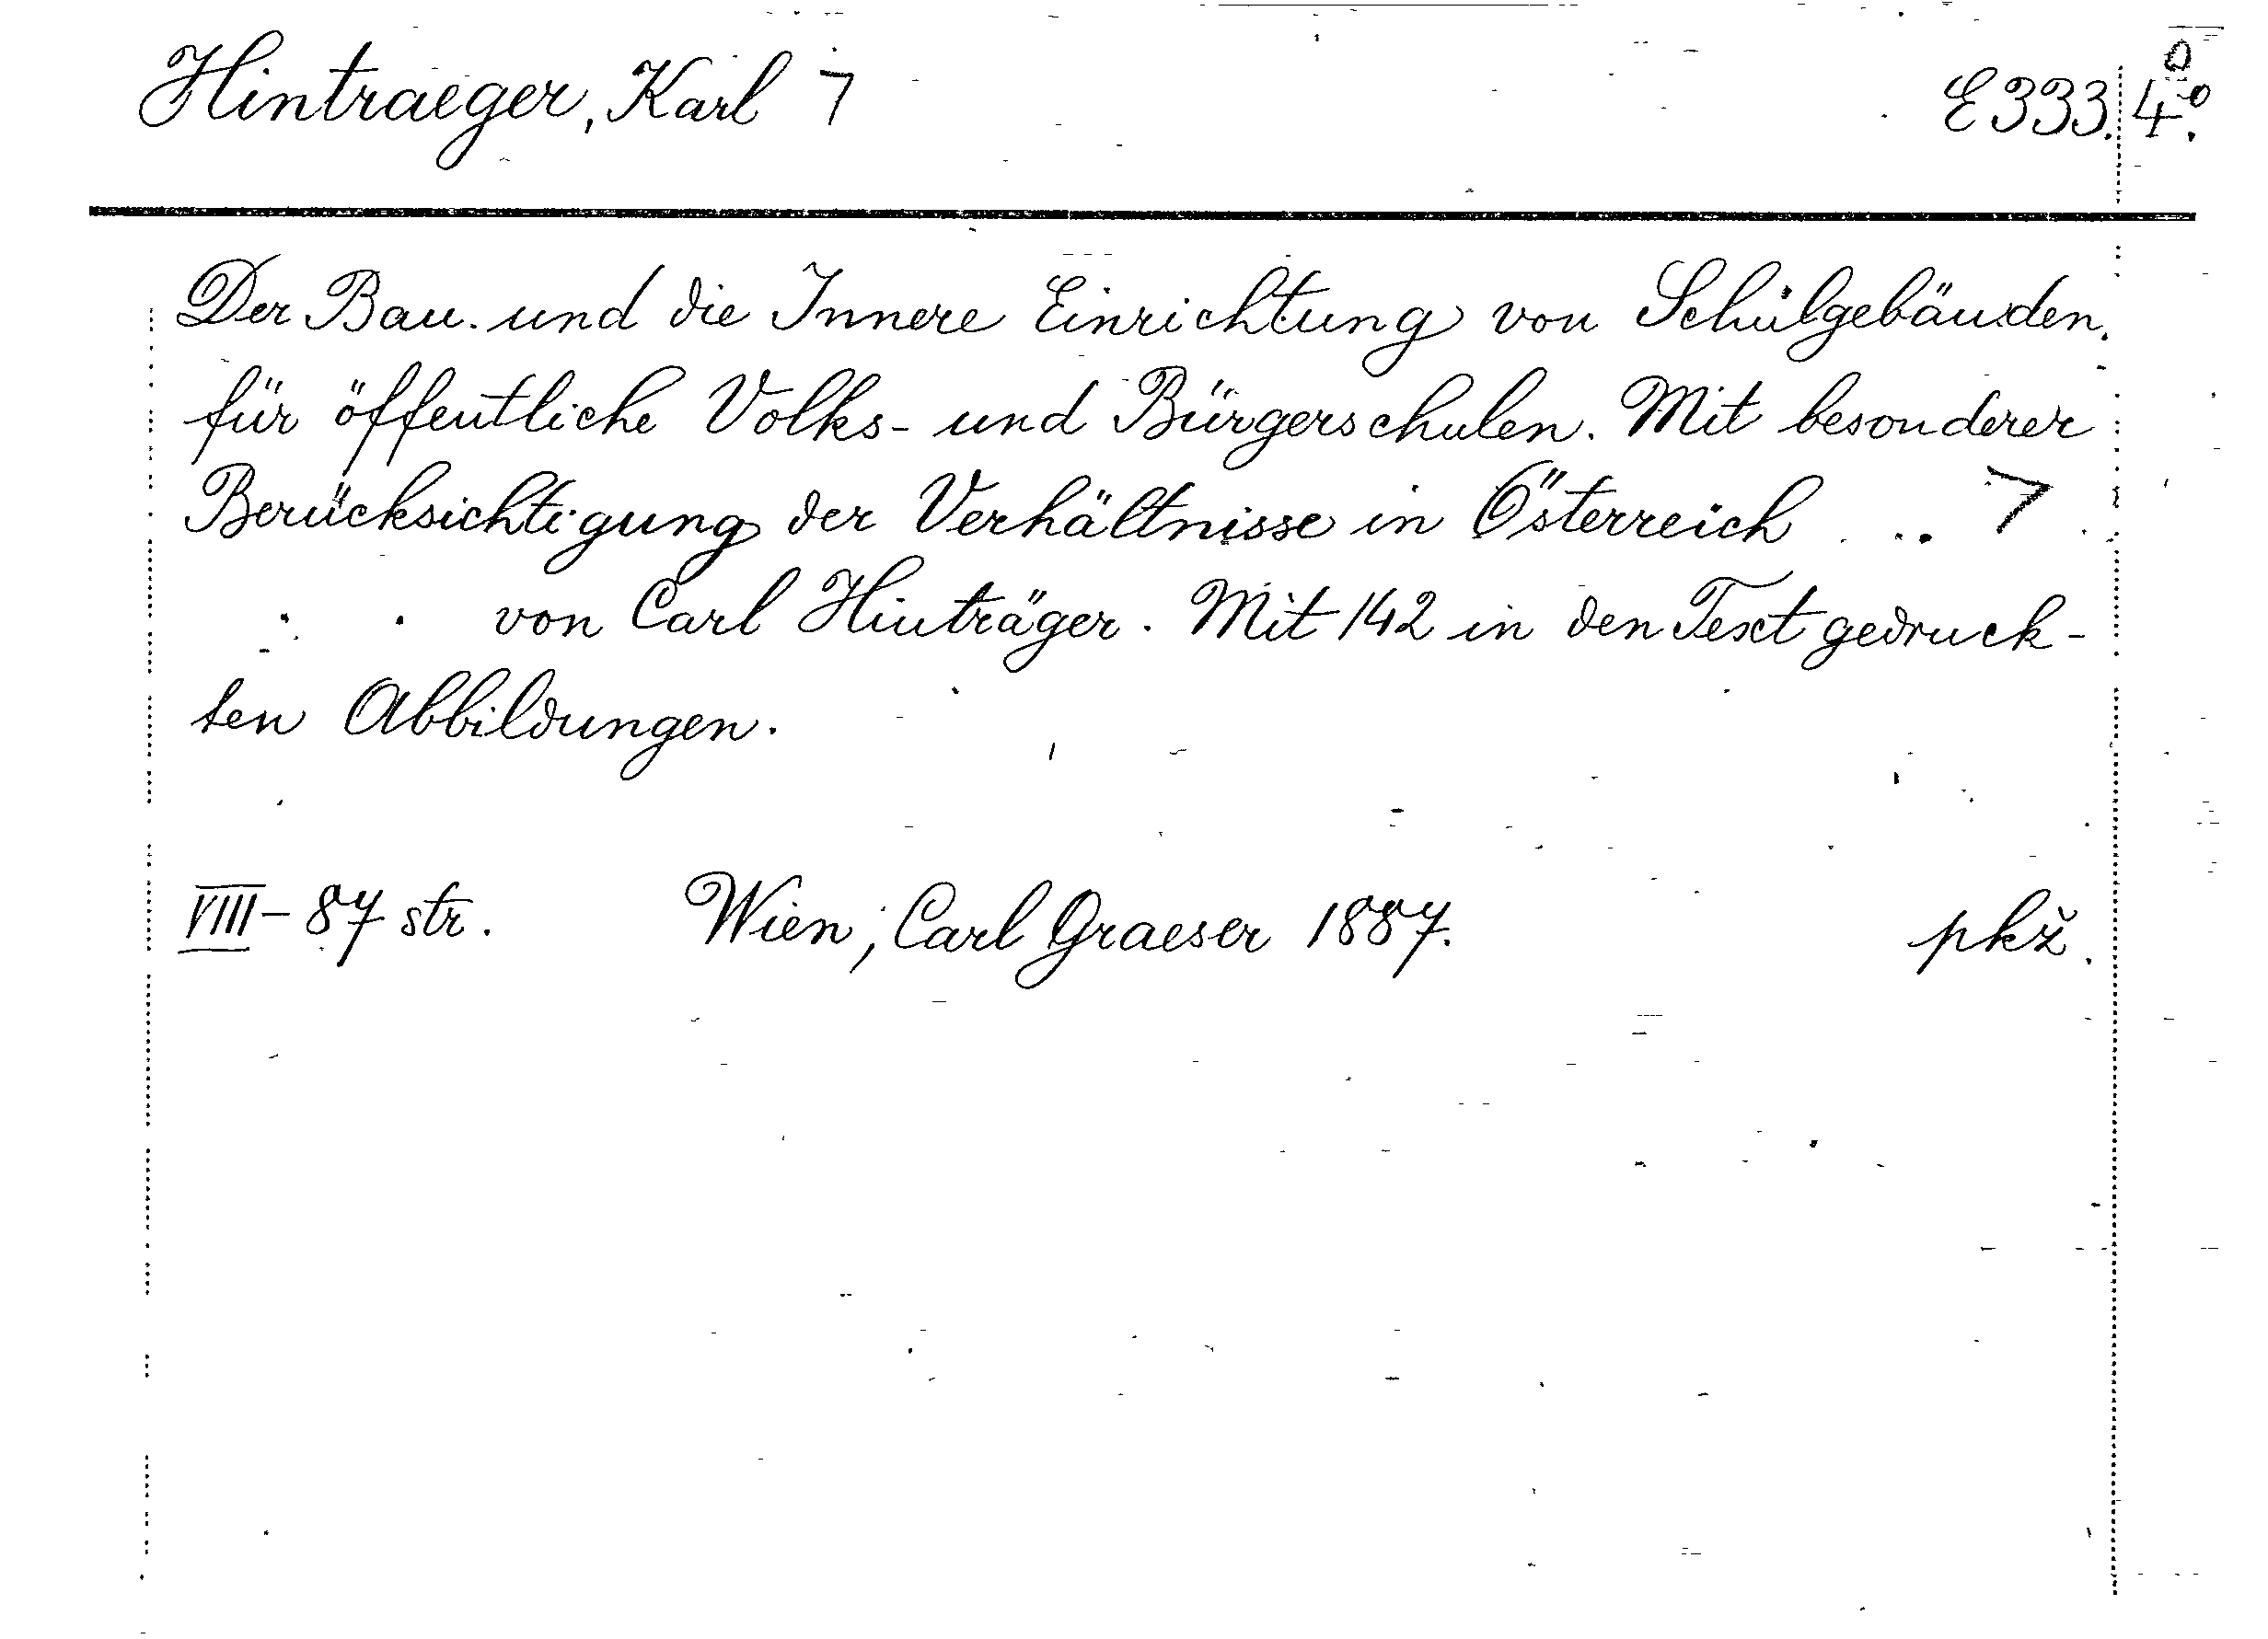 Hintraeger, Karl 7 E 333. 4⁰.
Der Bau und die Innere Einrichtung von Schulgebäuden
für öffentliche Volks- und Bürgerschulen. Mit besonderer
Berücksichtigung der Verhältnisse in Österreich ... 7
von Carl Hinträger. Mit 142 in den Text gedruck-
ten Abbildungen.
VIII - 87 str. Wien, Carl Graeser 1887. pkž.